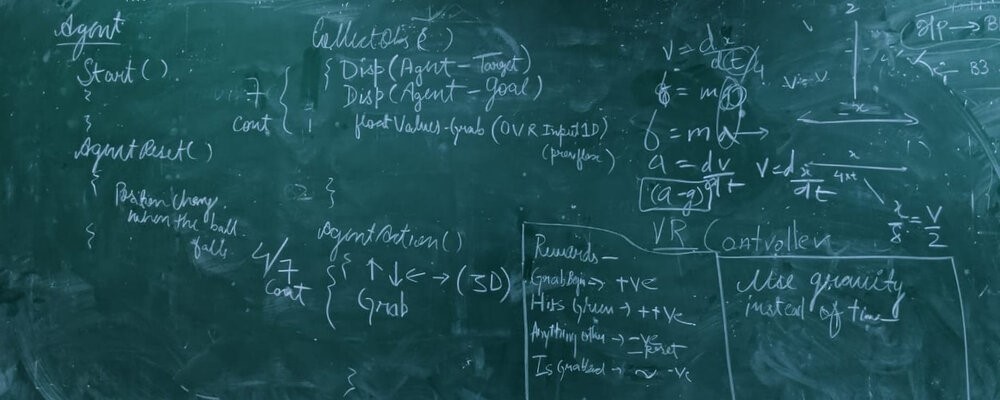 Agent
Start()
}
}
AgentReset()
{
Position change
when the ball
falls
{
CollectObs()
7
cont
{ Disp(Agent - Target)
Disp(Agent - Goal)
float Values - Grab (OVR Input 1D)
}
AgentAction()
7
cont
{ { ↑ ↓ ← → (3D)
Grab
}
Rewards -
Grab Begin → +ve
Hits Green → ++ve
Anything other → -ve
reset
Is Grabbed → ~ -ve
VR Controller
Use gravity
instead of time
V = dx
d(t)
= mg
f = ma
a = dv
dt
(a-g)
V = dx
dt
V = V
2
-x
x
x/8 = V/2
O/P → B
B3